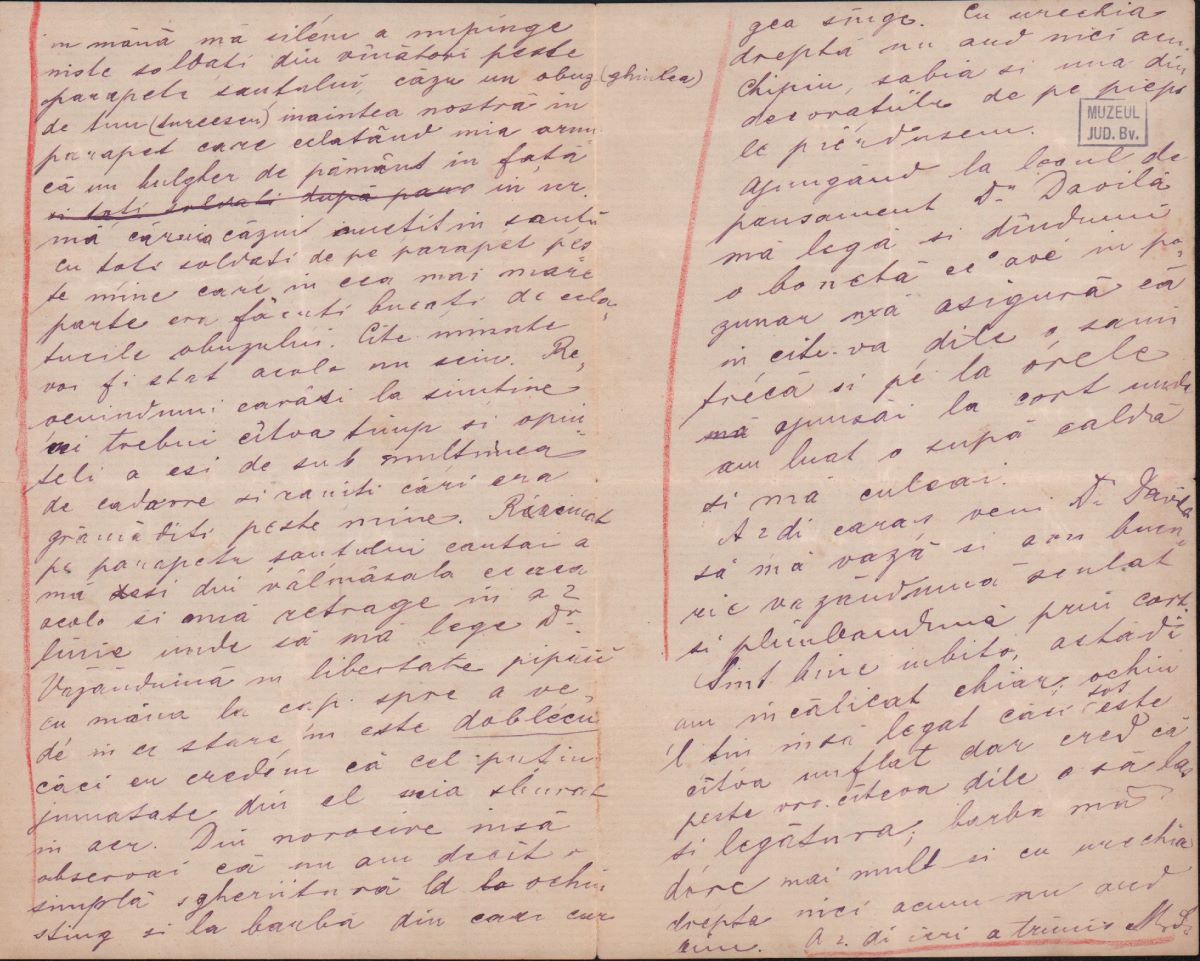 in mână mă silém a nupinge
niste soldati din vînători peste
parapetu santului, căzu un obuz (ghiulea)
de tun (turcescu) inaintea nostră în
parapet care eclatând mia arun
că un bulgher de pământ in fată
si toti soldati după para in ur
mă căruia căzui ametit in santu
cu toti soldati de pe parapet pes
te mine care in cea mai mare
parte era făcuti bucati de ecla,
turile obuzului. Cite minute
voi fi stat acolo nu sciu. Re,
venindumi earăsi la simtire
mi trebui cîtva timp si opin
teli a esi de sub multimea
de cadavre si raniti cări era
grămăditi peste mine. Răzimat
pe parapetu santului cautai a
mă esi din vălmăsala ce era
acolo si amă retrage in a 2
linie unde să mă lege Dr.
Văzăndumă in libertate pipăii
cu mâna la cap. spre a ve,
dé in ce stare mi este doblécu
căci eu credém că cel putin
jumatate din el mia sburat
in aer. Din norocire insă
observai că nu am decît o
simplă sgheriitură la ochiu
sting si la barbă din cari cur
gea sînge. Cu urechia
dreptă nu aud nici acu.
Chipiu, sabia si una din
decoratiile de pe piept
le pierdusem.
Ajungând la locul de
pansament Dr Davilă
mă legă si dîndumi
o bonetă ce avé in po,
zunar mă asigură că
in cite-va dile o sami
trécă si pe la órele
mă ajunsăi la cort unde
am luat o supă caldă
si mă culcai.
A 2 di earas veni Dr Davila
să mă vază si avu bucu
rie văzăndumă sculat
si plimbandumă prin cort.
Sint bine iubito, astădi
am incălicat chiar, ochiu
'l tin insă legat căci sos este
cîtva umflat dar cred că
peste vro cîteva dile o să las
si legătura; barba mă
dóre mai mult si cu urechia
drepta nici acum nu aud
bine. A 2. di ieri a trimis M. S.
MUZEUL
JUD. Bv.